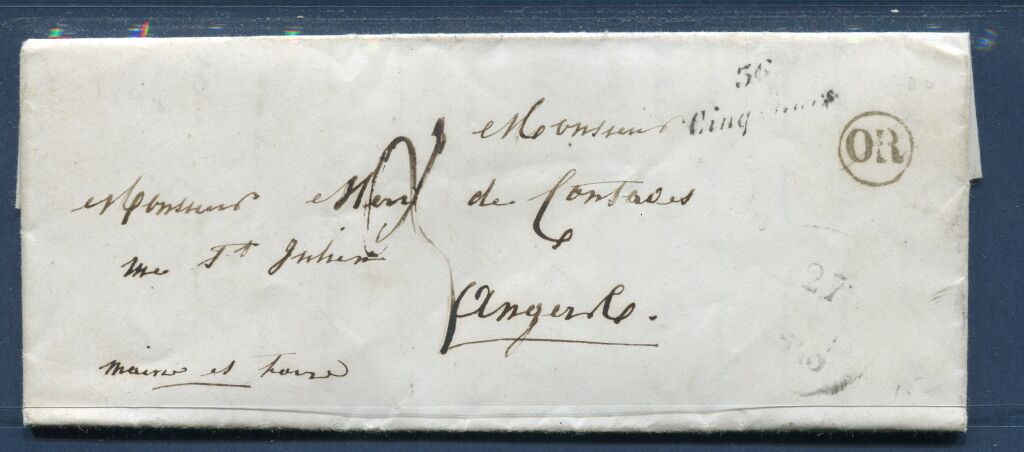 36
Cinq
OR
Monsieur
Monsieur Henry de Contades
rue St Julien
Angers
maine et Loire
27